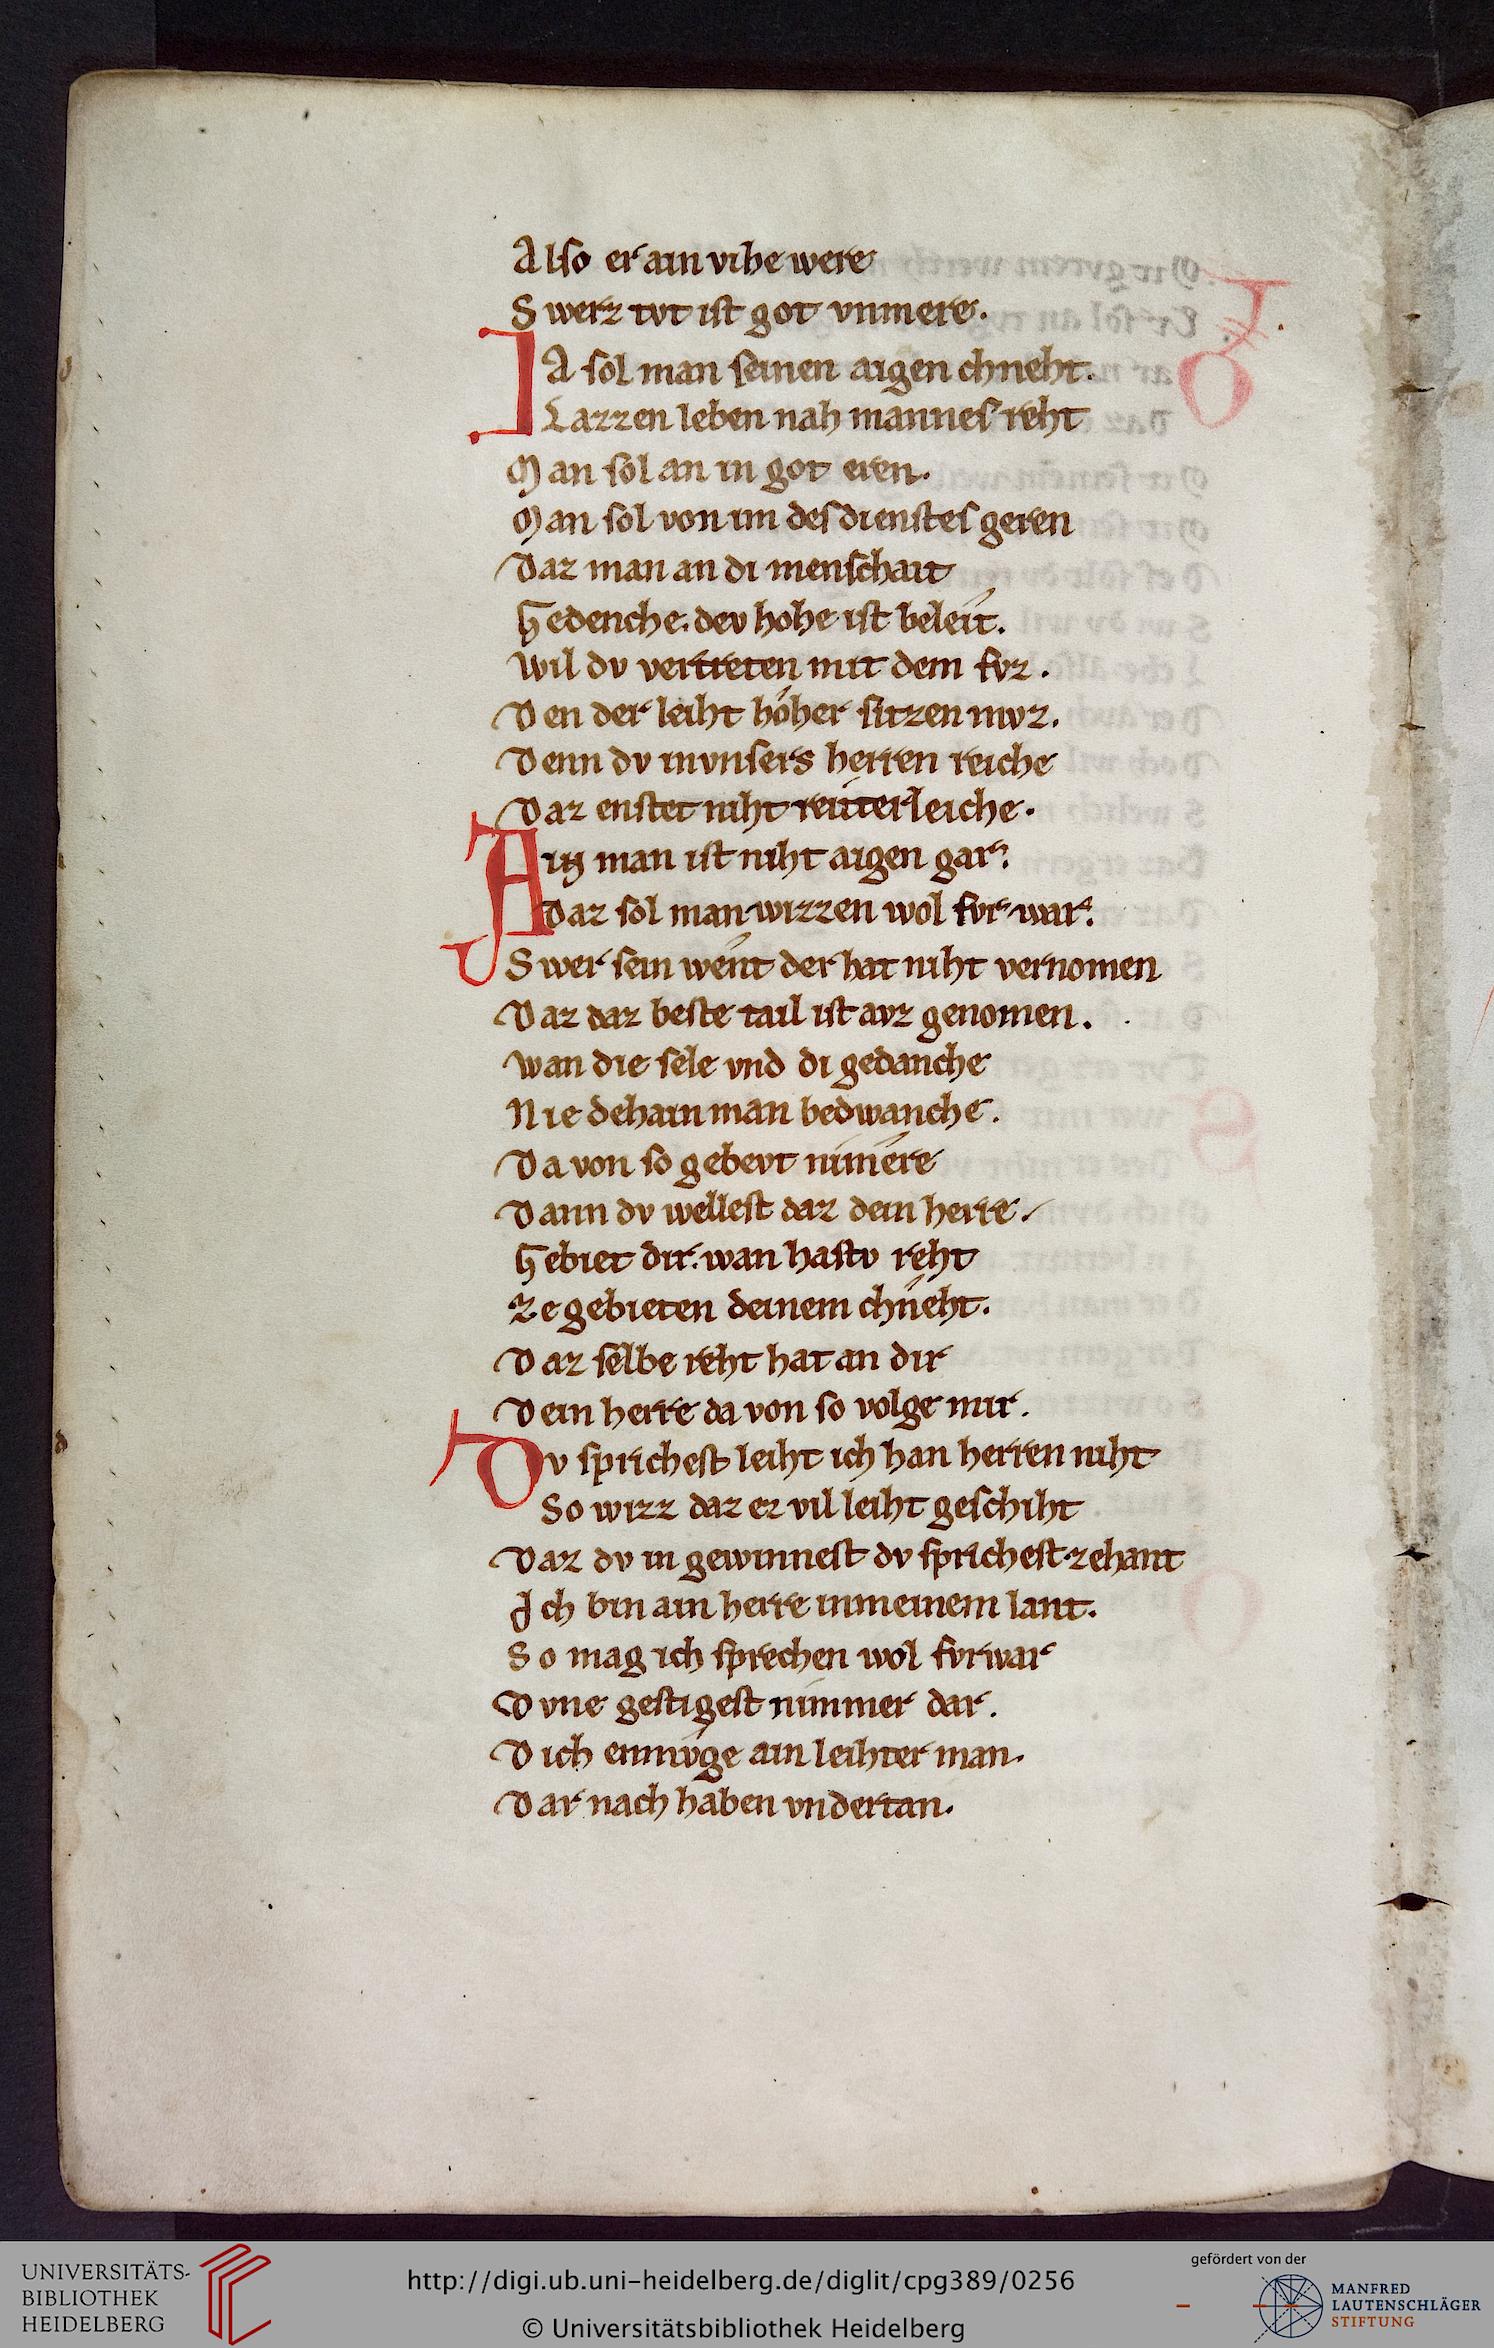 Also er ain vihe were
Swerz tvt ist got vnmere.
JA sol man seinen aigen chneht.
Lazzen leben nah mannes reht
Man sol an in got eren.
Man sol von im des dienstes geren
Daz man an di menschait
Gedenche. dev hohe ist beleit.
Wil dv vertreten mit dem fvz.
Den der leiht hoher sitzen mvz.
Denn dv in vnsers herren reiche
Daz enstet niht reiterleiche.
Ain man ist niht aigen gar.
Daz sol man wizzen wol fvr war.
Swer sein went der hat niht vernomen
Daz daz beste tail ist avz genomen.
Wan die sele vnd di gedanche
Nie dehain man bedwanche.
Da von so gebevt nimere
Dann dv wellest daz dein herre.
Gebiet dir. wan hastv reht
Ze gebieten deinem chneht.
Daz selbe reht hat an dir
Dein herre da von so volge mir.
Dv sprichest leiht ich han herren niht
So wizz daz ez vil leiht geschiht
Daz dv in gewinnest dv sprichest zehant
Ich bin ain herre in meinem lant.
So mag ich sprechen wol fvr war
Dvne gestigest nimmer dar.
Dich enmvge ain leihter man.
Dar nach haben vndertan.
UNIVERSITÄTS-
BIBLIOTHEK
HEIDELBERG
http://digi.ub.uni-heidelberg.de/diglit/cpg389/0256
© Universitätsbibliothek Heidelberg
gefördert von der
MANFRED
LAUTENSCHLÄGER
STIFTUNG